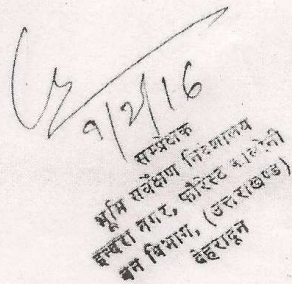 9/2/16
सम्प्रेक्षक
भूमि सर्वेक्षण निदेशालय
इन्दिरा नगर, फॉरेस्ट कालोनी
वन विभाग, (उत्तराखण्ड)
देहरादून